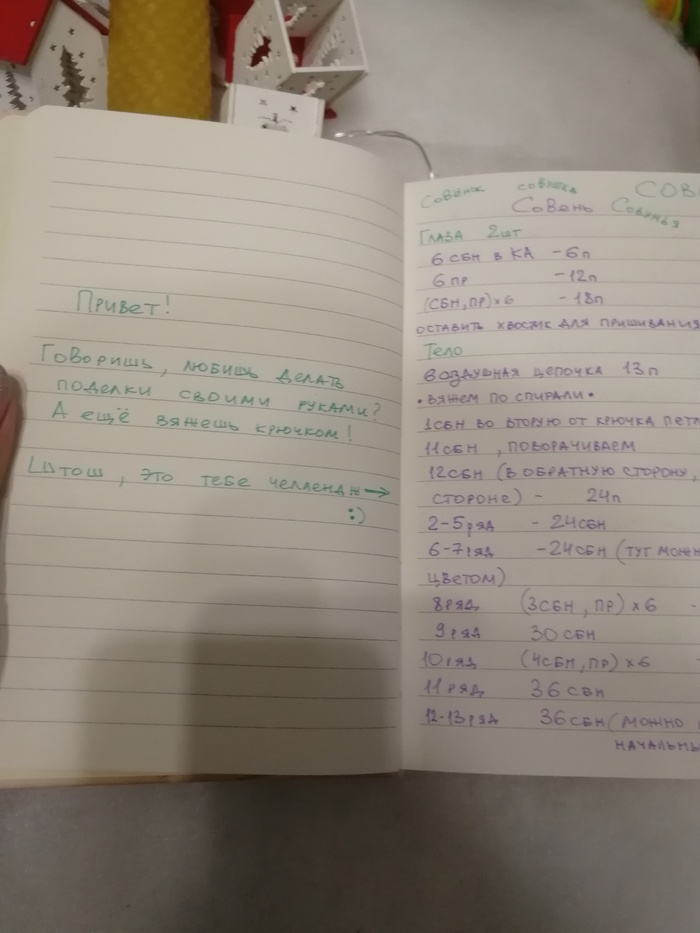 Привет!
Говоришь, любишь делать
поделки своими руками?
А ещё вяжешь крючком!
Штош, это тебе челлендж →
:)
Совёнок совушка СОВ
Совень Совунья
Глаза 2шт
6 сбн в КА - 6п
6 пр - 12п
(сбн, пр) х 6 - 18п
оставить хвостик для пришивания
Тело
воздушная цепочка 13п
• вяжем по спирали •
1сбн во вторую от крючка петл
11сбн, поворачиваем
12сбн (в обратную сторону,
стороне) - 24п
2-5ряд - 24сбн
6-7ряд - 24сбн (тут можн
цветом)
8ряд (3сбн, пр) х 6 -
9ряд 30 сбн
10ряд (4сбн, пр) х 6 -
11ряд 36 сбн
12-13ряд 36 сбн (можно
начальны